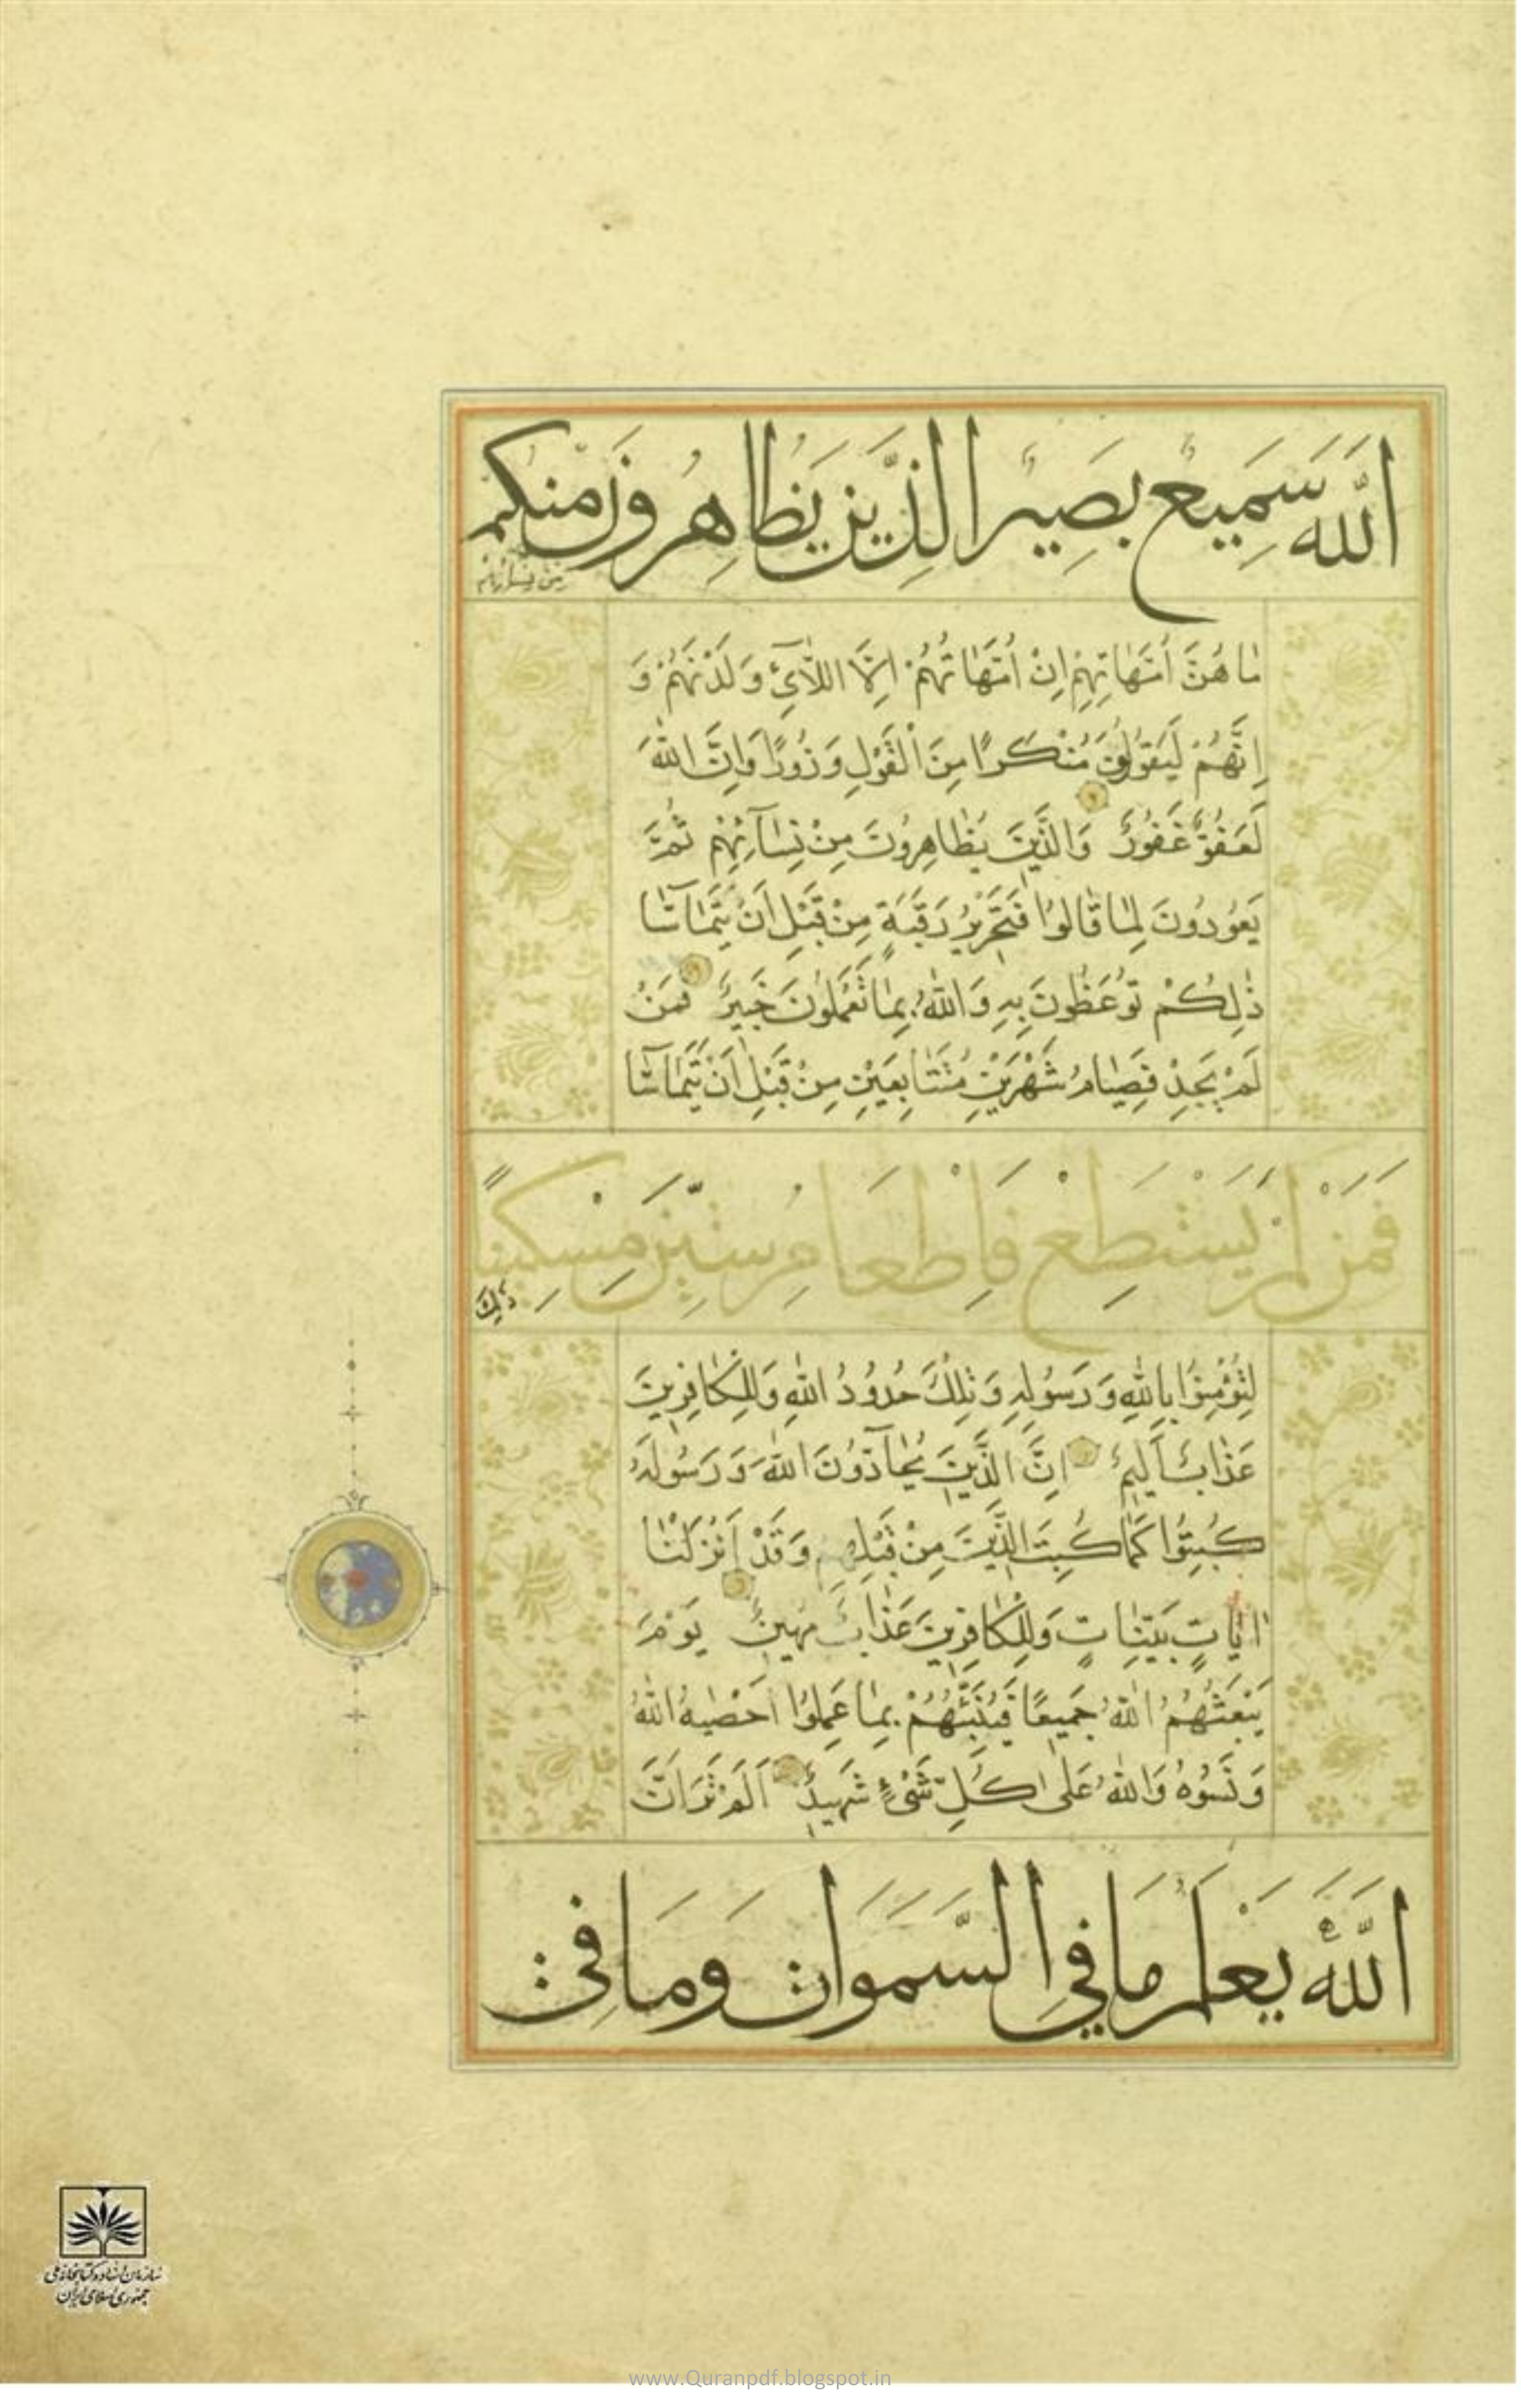 اللَّهَ سَمِيعٌ بَصِيرٌ الَّذِينَ يُظَاهِرُونَ مِنْكُمْ
مِنْ نِسَائِهِمْ
مَا هُنَّ أُمَّهَاتِهِمْ اِنْ اُمَّهَاتُهُمْ اِلَّا اللَّائِي وَلَدْنَهُمْ وَ
اِنَّهُمْ لَيَقُولُونَ مُنْكَرًا مِنَ الْقَوْلِ وَزُورًا وَاِنَّ اللّٰهَ
لَعَفُوٌّ غَفُورٌ وَالَّذِينَ يُظَاهِرُونَ مِنْ نِسَآئِهِمْ ثُمَّ
يَعُودُونَ لِمَا قَالُوا فَتَحْرِيرُ رَقَبَةٍ مِنْ قَبْلِ اَنْ يَتَمَآسَّا
ذٰلِكُمْ تُوعَظُونَ بِهِ وَاللّٰهُ بِمَا تَعْمَلُونَ خَبِيرٌ فَمَنْ
لَمْ يَجِدْ فَصِيَامُ شَهْرَيْنِ مُتَتَابِعَيْنِ مِنْ قَبْلِ اَنْ يَتَمَآسَّا
فَمَنْ لَمْ يَسْتَطِعْ فَاِطْعَامُ سِتِّينَ مِسْكِينًا
ذٰلِكَ
لِتُؤْمِنُوا بِاللّٰهِ وَرَسُولِهِ وَتِلْكَ حُدُودُ اللّٰهِ وَلِلْكَافِرِينَ
عَذَابٌ اَلِيمٌ اِنَّ الَّذِينَ يُحَآدُّونَ اللّٰهَ وَرَسُولَهُ
كُبِتُوا كَمَا كُبِتَ الَّذِينَ مِنْ قَبْلِهِمْ وَقَدْ اَنْزَلْنَا
اٰيَاتٍ بَيِّنَاتٍ وَلِلْكَافِرِينَ عَذَابٌ مُهِينٌ يَوْمَ
يَبْعَثُهُمُ اللّٰهُ جَمِيعًا فَيُنَبِّئُهُمْ بِمَا عَمِلُوا اَحْصٰيهُ اللّٰهُ
وَنَسُوهُ وَاللّٰهُ عَلٰى كُلِّ شَيْءٍ شَهِيدٌ اَلَمْ تَرَ اَنَّ
اللَّهَ يَعْلَمُ مَا فِي السَّمَوَاتِ وَمَا فِي
سازمان اسناد و کتابخانه ملی
جمهوری اسلامی ایران
www.Quranpdf.blogspot.in